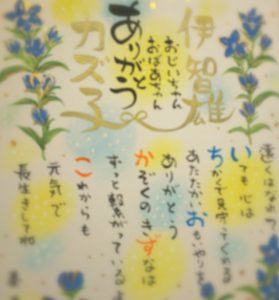 伊智雄
おじいちゃん
おばあちゃん
ありがとう
カズ子
遠くはなれて
いても 心は
ちかくで見守ってくれる
あたたかいおもいやりを
ありがとう
かぞくのきずなは
ずっと繋がっているよ
これからも
元気で
長生きしてね